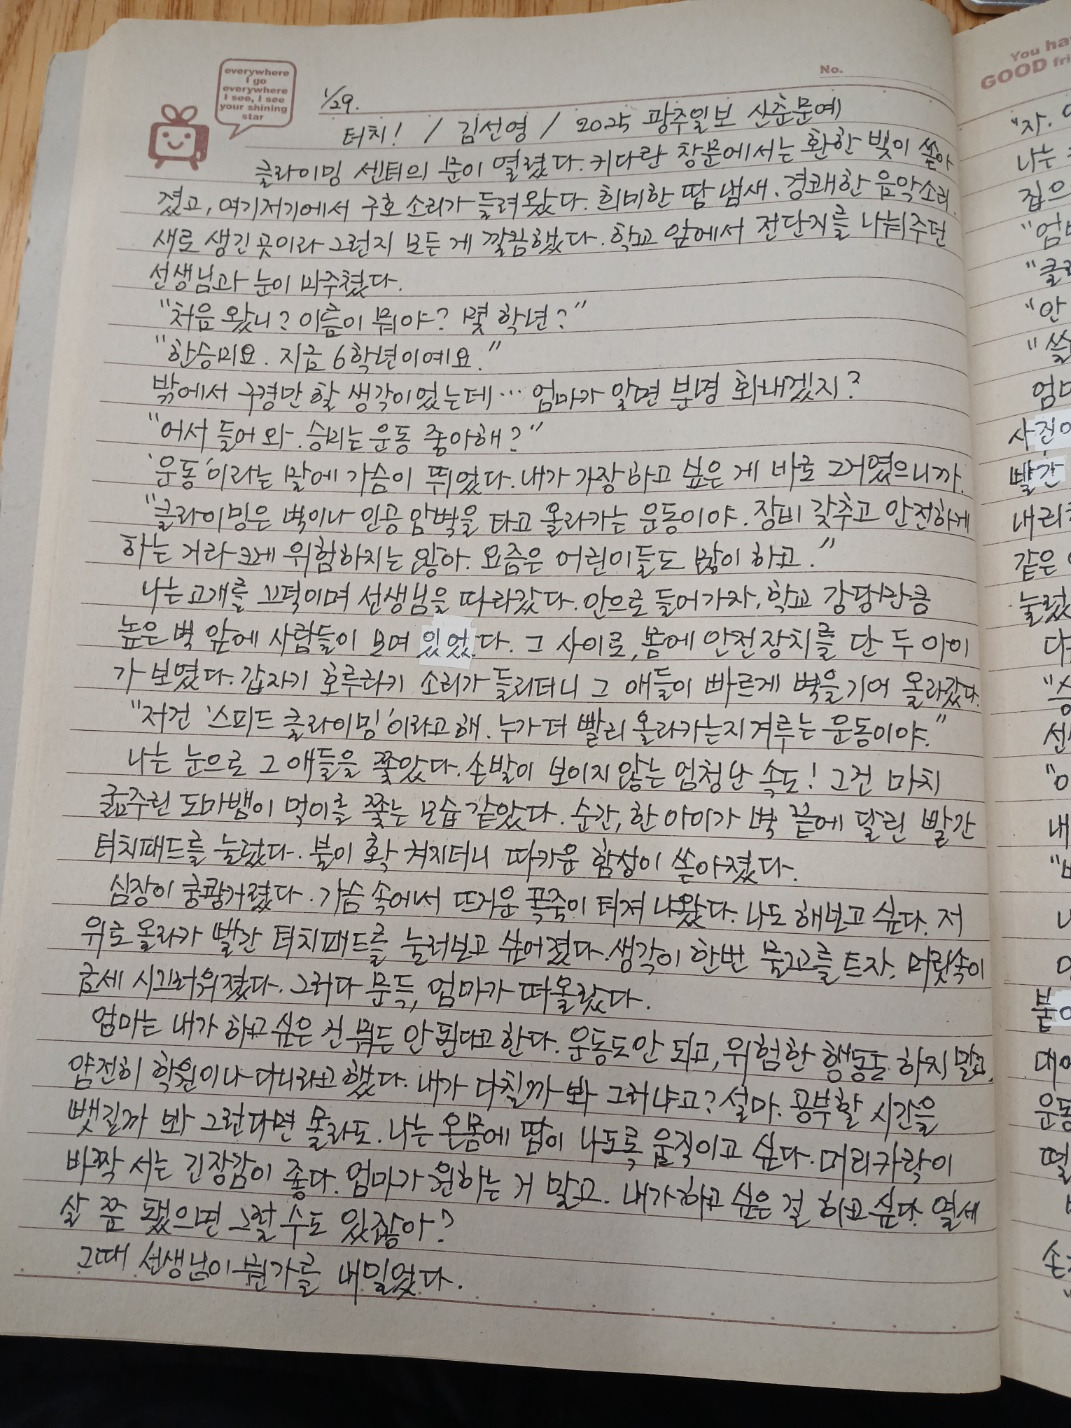 everywhere
I go
everywhere
I see, I see
your shining
star
No.
You ha
GOOD fri
1/29.
터치! / 김선영 / 2025 광주일보 신춘문예
클라이밍 센터의 문이 열렸다. 커다란 창문에서는 환한 빛이 쏟아
졌고, 여기저기에서 구호 소리가 들려왔다. 희미한 땀 냄새. 경쾌한 음악소리.
새로 생긴 곳이라 그런지 모든 게 깔끔했다. 학교 앞에서 전단지를 나눠주던
선생님과 눈이 마주쳤다.
"처음 왔니? 이름이 뭐야? 몇 학년?"
"한승미요. 지금 6학년이에요."
밖에서 구경만 할 생각이었는데… 엄마가 알면 분명 화내겠지?
"어서 들어 와. 승미는 운동 좋아해?"
'운동'이라는 말에 가슴이 뛰었다. 내가 가장 하고 싶은 게 바로 그거였으니까.
"클라이밍은 벽이나 인공 암벽을 타고 올라가는 운동이야. 장비 갖추고 안전하게
하는 거라 크게 위험하지는 않아. 요즘은 어린이들도 많이 하고."
나는 고개를 끄덕이며 선생님을 따라갔다. 안으로 들어가자, 학교 강당만큼
높은 벽 앞에 사람들이 모여 있었다. 그 사이로, 몸에 안전장치를 단 두 아이
가 보였다. 갑자기 호루라기 소리가 들리더니 그 애들이 빠르게 벽을 기어 올라갔다.
"저건 '스피드 클라이밍'이라고 해. 누가 더 빨리 올라가는지 겨루는 운동이야."
나는 눈으로 그 애들을 쫓았다. 손발이 보이지 않는 엄청난 속도! 그건 마치
굶주린 도마뱀이 먹이를 쫓는 모습 같았다. 순간, 한 아이가 벽 끝에 달린 빨간
터치패드를 눌렀다. 불이 확 켜지더니 따가운 함성이 쏟아졌다.
심장이 쿵쾅거렸다. 가슴 속에서 뜨거운 폭죽이 터져 나왔다. 나도 해보고 싶다. 저
위로 올라가 빨간 터치패드를 눌러보고 싶어졌다. 생각이 한번 물꼬를 트자, 머릿속이
금세 시끄러워졌다. 그러다 문득, 엄마가 떠올랐다.
엄마는 내가 하고 싶은 건 뭐든 안 된다고 한다. 운동도 안 되고, 위험한 행동도 하지 말고,
얌전히 학원이나 다니라고 했다. 내가 다칠까 봐 그러냐고? 설마. 공부할 시간을
뺏길까 봐 그런다면 몰라도. 나는 온몸에 땀이 나도록 움직이고 싶다. 머리카락이
바짝 서는 긴장감이 좋다. 엄마가 원하는 거 말고. 내가 하고 싶은 걸 하고 싶다. 열세
살 쯤 됐으면 그럴 수도 있잖아?
그때 선생님이 뭔가를 내밀었다.